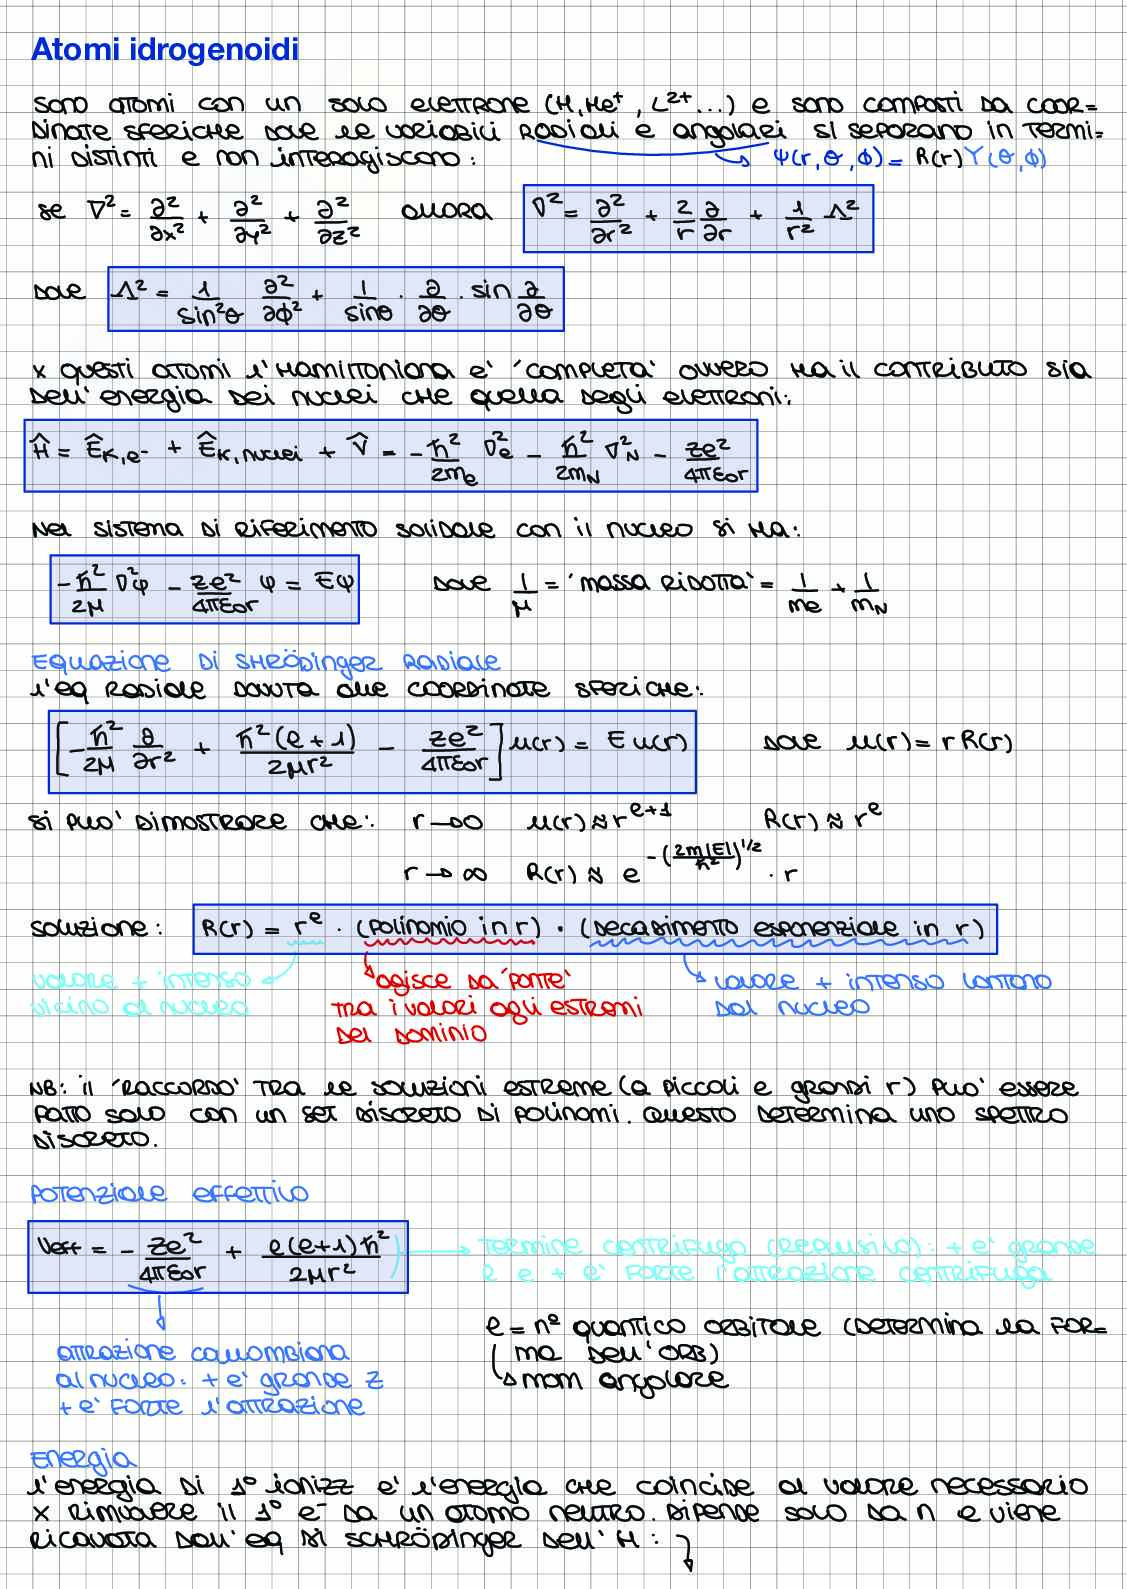 Atomi idrogenoidi
sono atomi con un solo elettrone (H, He⁺, L²⁺...) e sono composti da coor=
dinate sferiche dove le variabili radiali e angolari si separano in termi=
ni distinti e non interagiscono: ψ(r, θ, ϕ) = R(r) Y(θ, ϕ)
se ∇² = ∂²/∂x² + ∂²/∂y² + ∂²/∂z² allora ∇² = ∂²/∂r² + 2/r ∂/∂r + 1/r² Λ²
dove Λ² = 1/sin²θ ∂²/∂ϕ² + 1/sinθ · ∂/∂θ · sin ∂/∂θ
x questi atomi l'Hamiltoniana e' 'completa' ovvero ha il contributo sia
dell'energia dei nuclei che quella degli elettroni:
Ĥ = Ê_K,e⁻ + Ê_K,nuclei + V̂ = - ħ²/2mₑ ∇²ₑ - ħ²/2m_N ∇²_N - Ze²/4πε₀r
Nel sistema di riferimento solidale con il nucleo si ha:
- ħ²/2μ ∇²φ - Ze²/4πε₀r φ = Eφ dove 1/μ = 'massa ridotta' = 1/me + 1/m_N
Equazione di Shrödinger radiale
l'eq radiale dovuta alle coordinate sferiche:
[- ħ²/2μ ∂/∂r² + ħ²(l+1)/2μr² - Ze²/4πε₀r] u(r) = E u(r) dove u(r) = r R(r)
si puo' dimostrare che: r→0 u(r) ≈ r^(l+1) R(r) ≈ r^l
r→∞ R(r) ≈ e^(-(2m|E|/ħ²)^1/2) · r
soluzione: R(r) = r^l · (polinomio in r) · (decadimento esponenziale in r)
valore + intenso agisce da 'ponte' valore + intenso lontano
vicino al nucleo tra i valori agli estremi dal nucleo
del dominio
NB: il 'raccordo' tra le soluzioni estreme (a piccoli e grandi r) puo' essere
fatto solo con un set discreto di polinomi. Questo determina uno spettro
discreto.
Potenziale effettivo
Veff = - Ze²/4πε₀r + l(l+1)ħ²/2μr² → termine centrifugo (repulsivo): + e' grande
l e + e' forte l'attrazione centrifuga
l = nº quantico orbitale (determina la for=
ma dell'orb)
mom angolare
attrazione coulombiana
al nucleo: + e' grande Z
+ e' forte l'attrazione
Energia
l'energia di 1º ionizz e' l'energia che coincide al valore necessario
x rimuovere il 1º e⁻ da un atomo neutro. Dipende solo da n e viene
ricavata dall'eq di Schrödinger dell'H: ↓